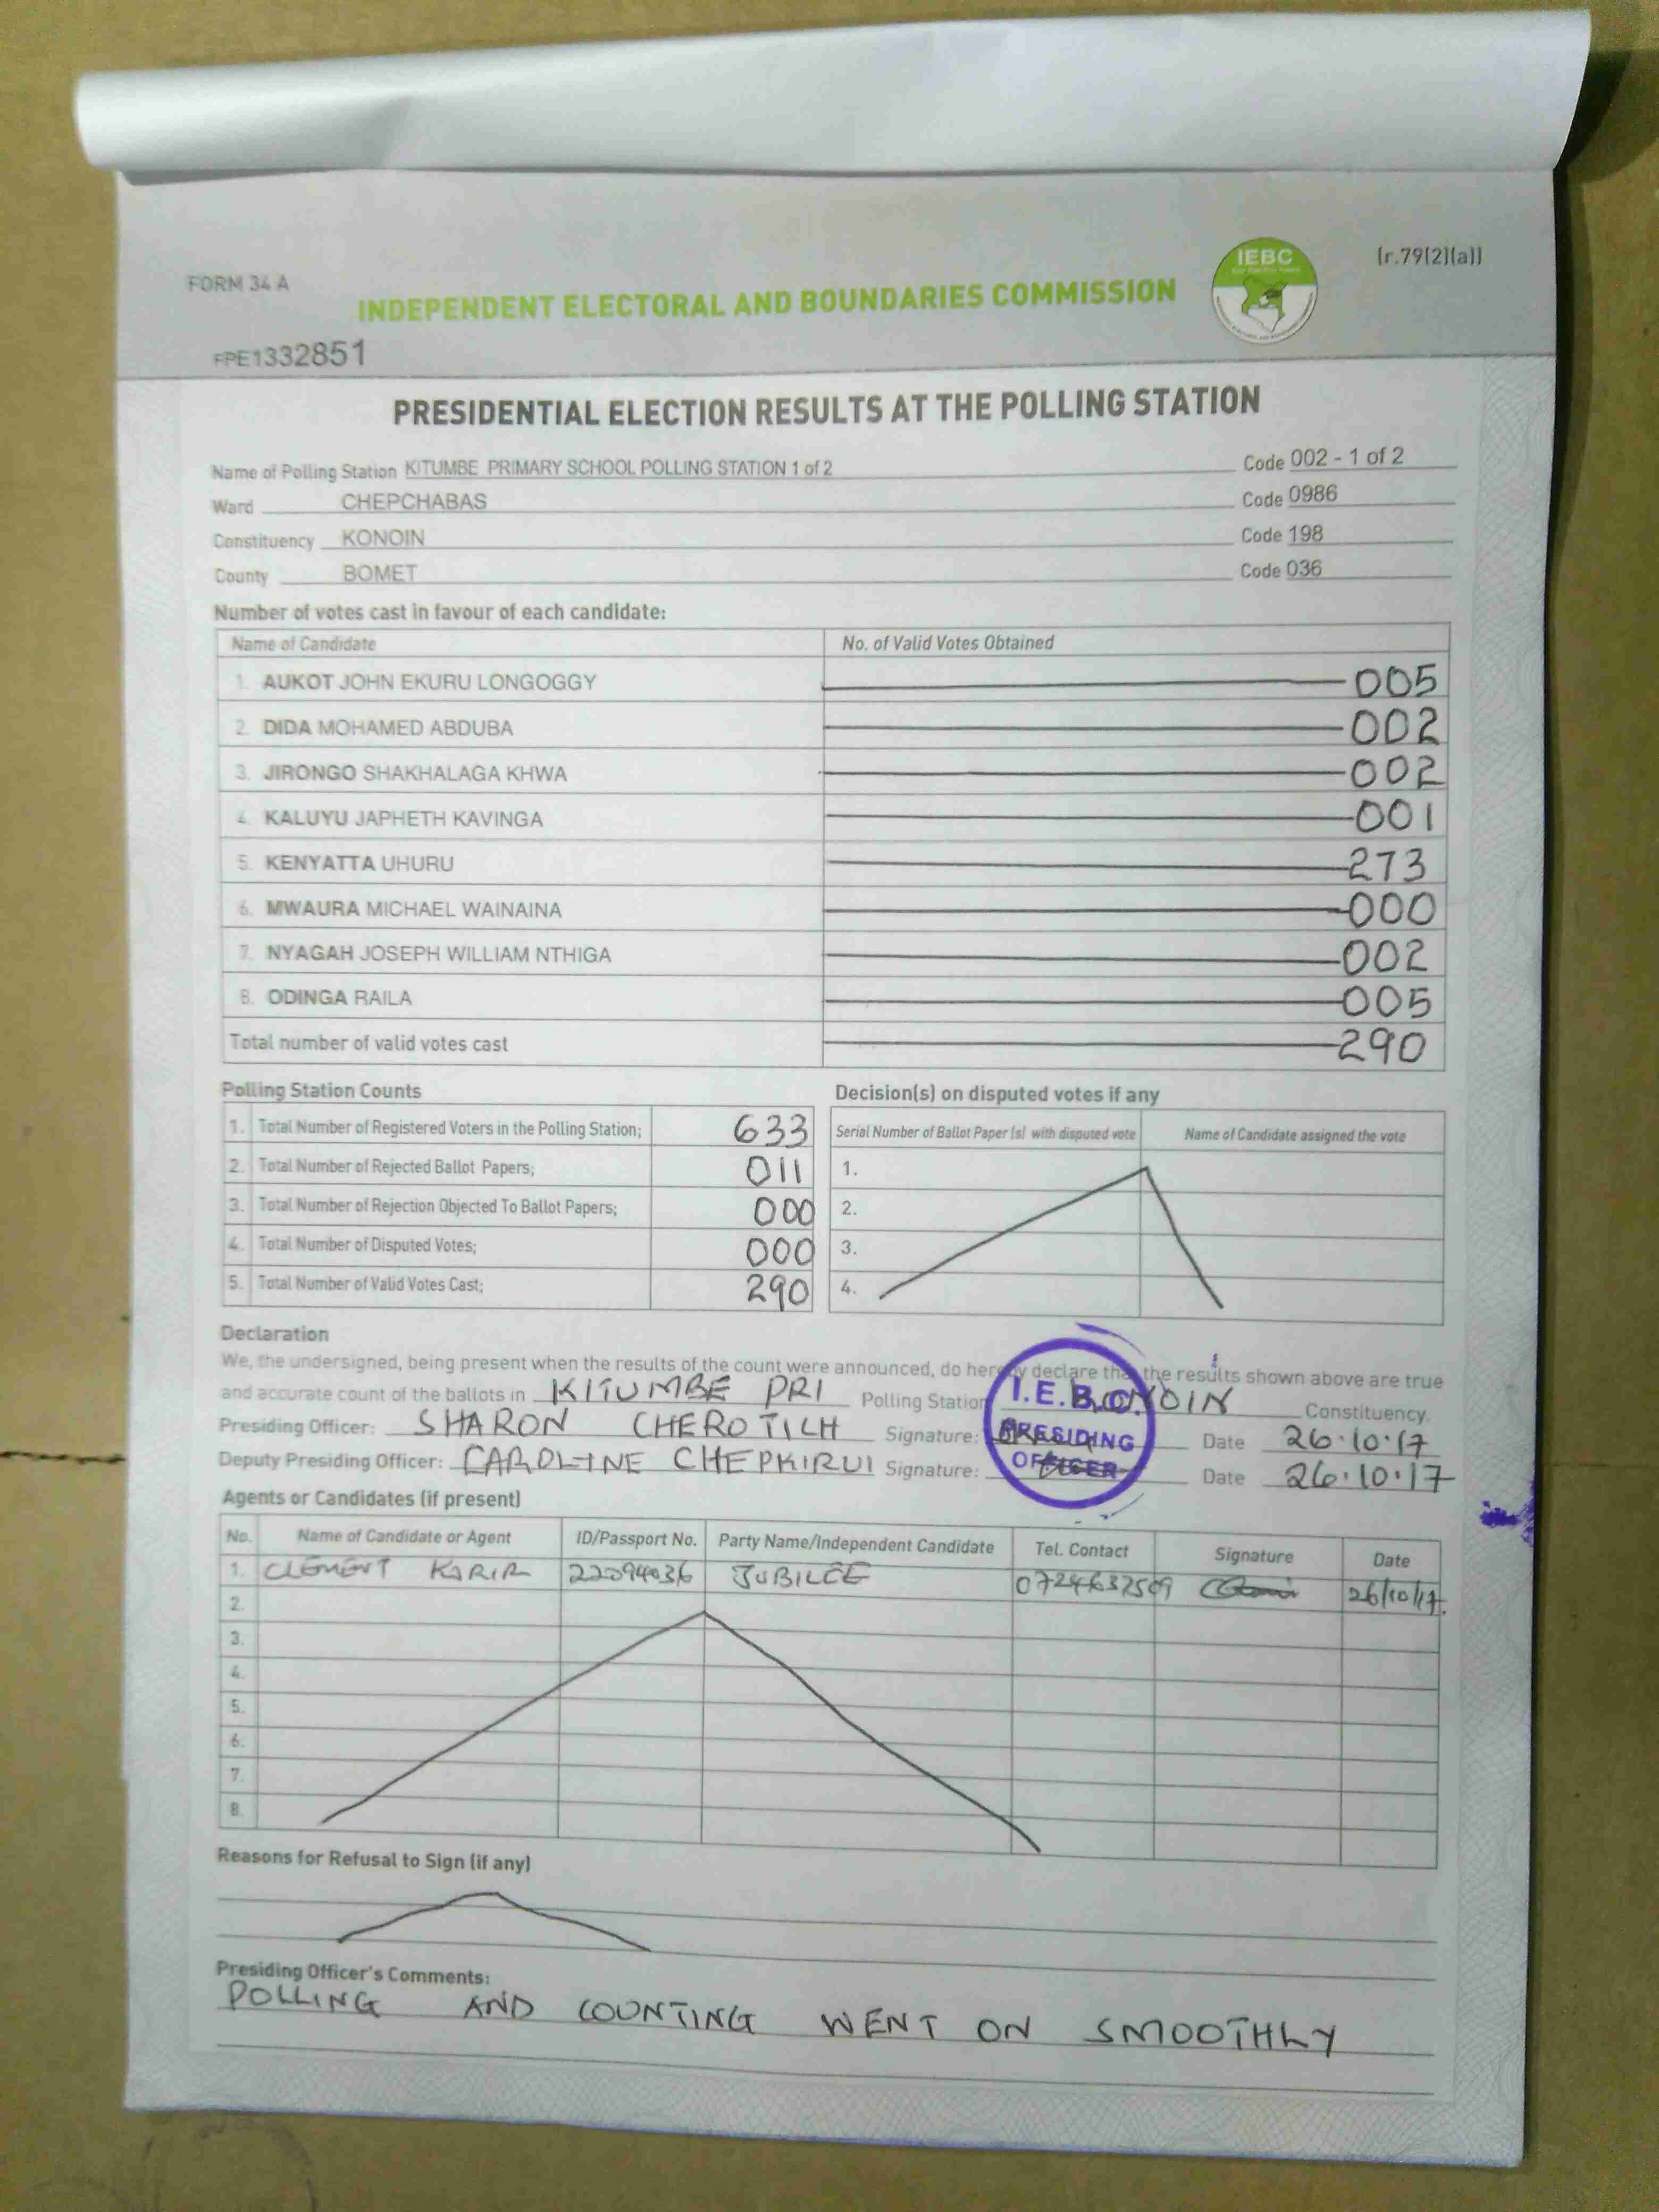 FORM 34 A
INDEPENDENT ELECTORAL AND BOUNDARIES COMMISSION
IEBC
(r.79(2)(a))
FPE1332851
PRESIDENTIAL ELECTION RESULTS AT THE POLLING STATION
Name of Polling Station KITUMBE PRIMARY SCHOOL POLLING STATION 1 of 2 Code 002 - 1 of 2
Ward CHEPCHABAS Code 0986
Constituency KONOIN Code 198
County BOMET Code 036
Number of votes cast in favour of each candidate:
Name of Candidate No. of Valid Votes Obtained
1. AUKOT JOHN EKURU LONGOGGY 005
2. DIDA MOHAMED ABDUBA 002
3. JIRONGO SHAKHALAGA KHWA 002
4. KALUYU JAPHETH KAVINGA 001
5. KENYATTA UHURU 273
6. MWAURA MICHAEL WAINAINA 000
7. NYAGAH JOSEPH WILLIAM NTHIGA 002
8. ODINGA RAILA 005
Total number of valid votes cast 290
Polling Station Counts
1. Total Number of Registered Voters in the Polling Station; 633
2. Total Number of Rejected Ballot Papers; 011
3. Total Number of Rejection Objected To Ballot Papers; 000
4. Total Number of Disputed Votes; 000
5. Total Number of Valid Votes Cast; 290
Decision(s) on disputed votes if any
Serial Number of Ballot Paper (s) with disputed vote Name of Candidate assigned the vote
1.
2.
3.
4.
Declaration
We, the undersigned, being present when the results of the count were announced, do hereby declare that the results shown above are true
and accurate count of the ballots in KITUMBE PRI Polling Station KONOIN Constituency.
Presiding Officer: SHARON CHEROTICH Signature: Date 26.10.17
Deputy Presiding Officer: CAROLINE CHEPKIRUI Signature: Date 26.10.17
I.E.B.C.
PRESIDING
OFFICER
Agents or Candidates (if present)
No. Name of Candidate or Agent ID/Passport No. Party Name/Independent Candidate Tel. Contact Signature Date
1. CLEMENT 22094036 JUBILEE 0724632509 26/10/17.
2.
3.
4.
5.
6.
7.
8.
Reasons for Refusal to Sign (if any)
Presiding Officer's Comments:
POLLING AND COUNTING WENT ON SMOOTHLY